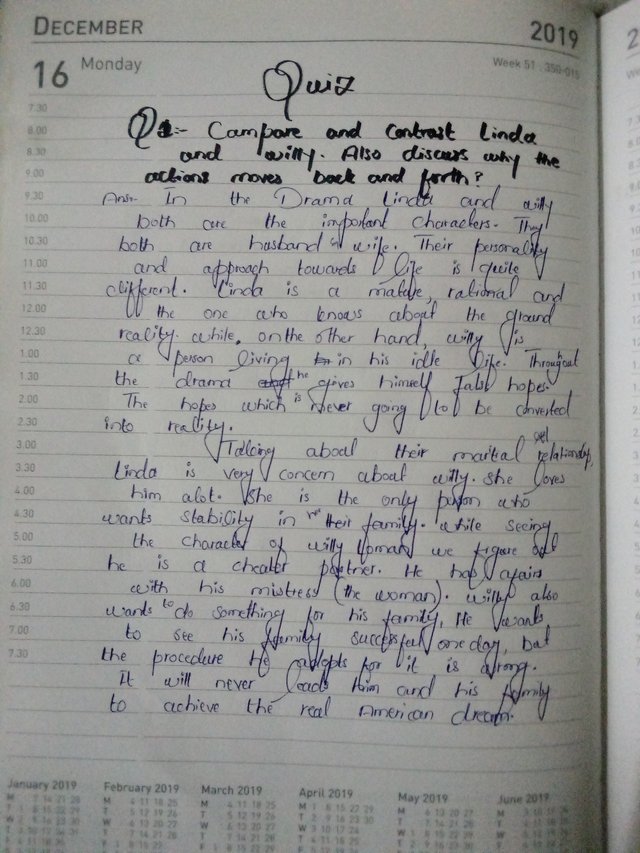 DECEMBER 2019
16 Monday Week 51 . 350-015
Quiz
7.30
8.00 Q1:- Campare and contrast Linda
8.30 and willy. Also discuss why the
9.00 actions moves back and forth?
9.30 Ans:- In the Drama Linda and willy
10.00 both are the important characters. They
10.30 both are husband & wife. Their personality
11.00 and approach towards life is quite
11.30 different. Linda is a mature, rational and
12.00 the one who knows about the ground
12.30 reality. while, on the other hand, willy is
1.00 a person living in his idle life. Throughout
1.30 the drama he gives himself fals hopes.
2.00 The hopes which is never going to be converted
2.30 into reality.
3.00 Talking about their martial relationship,
3.30 Linda is very concern about willy. She loves
4.00 him alot. She is the only person who
4.30 wants stability in their family. while seeing
5.00 the character of willy Loman we figure out
5.30 he is a cheater partner. He has afairs
6.00 with his mistress (the woman). willy also
6.30 wants to do something for his family. He wants
7.00 to see his family successful one day, but
7.30 the procedure He adopts for it is wrong.
It will never leads him and his family
to achieve the real American dream.
January 2019 February 2019 March 2019 April 2019 May 2019 June 2019